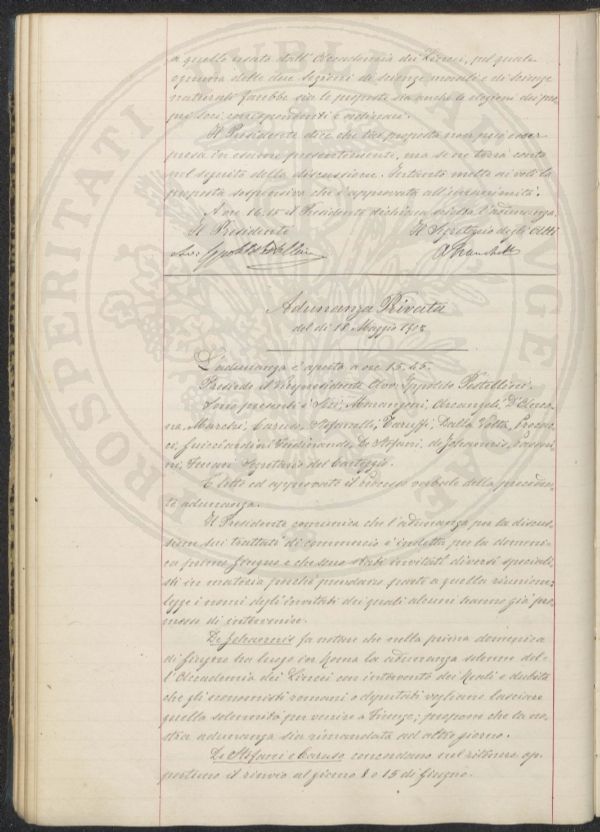 a quello usato dall'Accademia dei Lincei, pel quale
ognuna delle due sezioni di scienze morali e di scienze
naturali farebbe sia le proposte sia anche le elezioni dei pro-
pri soci corrispondenti e ordinari.
Il Presidente dice che tale proposta non può esser
presa in esame presentemente, ma se ne terrà conto
nel seguito della discussione. Intanto mette ai voti la
proposta sospensiva che è approvata all'unanimità.
A ore 16.15 il Presidente dichiara sciolta l'adunanza.
Il Presidente Il Segretario degli Atti
Adunanza Privata
del dì 18 Maggio 1908
L'adunanza è aperta a ore 15.45.
Presiede il Vicepresidente Avv. Ippolito Pestellini.
Sono presenti i Soci, Marangoni, Arcangeli, D'Ancona,
Marchi, Caruso, Stefanelli, Taruffi, Dalla Volta,
Guicciardini Ferdinando, De Stefani, de Johannis, Passeri-
ni, Segretario del Carteggio.
È letto ed approvato il processo verbale della preceden-
te adunanza.
Il Presidente comunica che l'adunanza per la discus-
sione sui trattati di commercio è indetta per la domeni-
ca primo Giugno e che sono stati invitati diversi speciali-
sti in materia perché prendano parte a quella riunione;
legge i nomi degli invitati dei quali alcuni hanno già pro-
messo di intervenire.
De Johannis fa notare che nella prima domenica
di giugno ha luogo in Roma la adunanza solenne del-
l'Accademia dei Lincei con intervento dei Reali e dubita
che gli economisti romani o deputati vogliano lasciare
quella solennità per venire a Firenze; propone che la no-
stra adunanza sia rimandata ad altro giorno.
De Stefani e Caruso concordano nel ritenere op-
portuno il rinvio al giorno 8 o 15 di Giugno.
PROSPERITATI PUBLICAE AUGENDAE